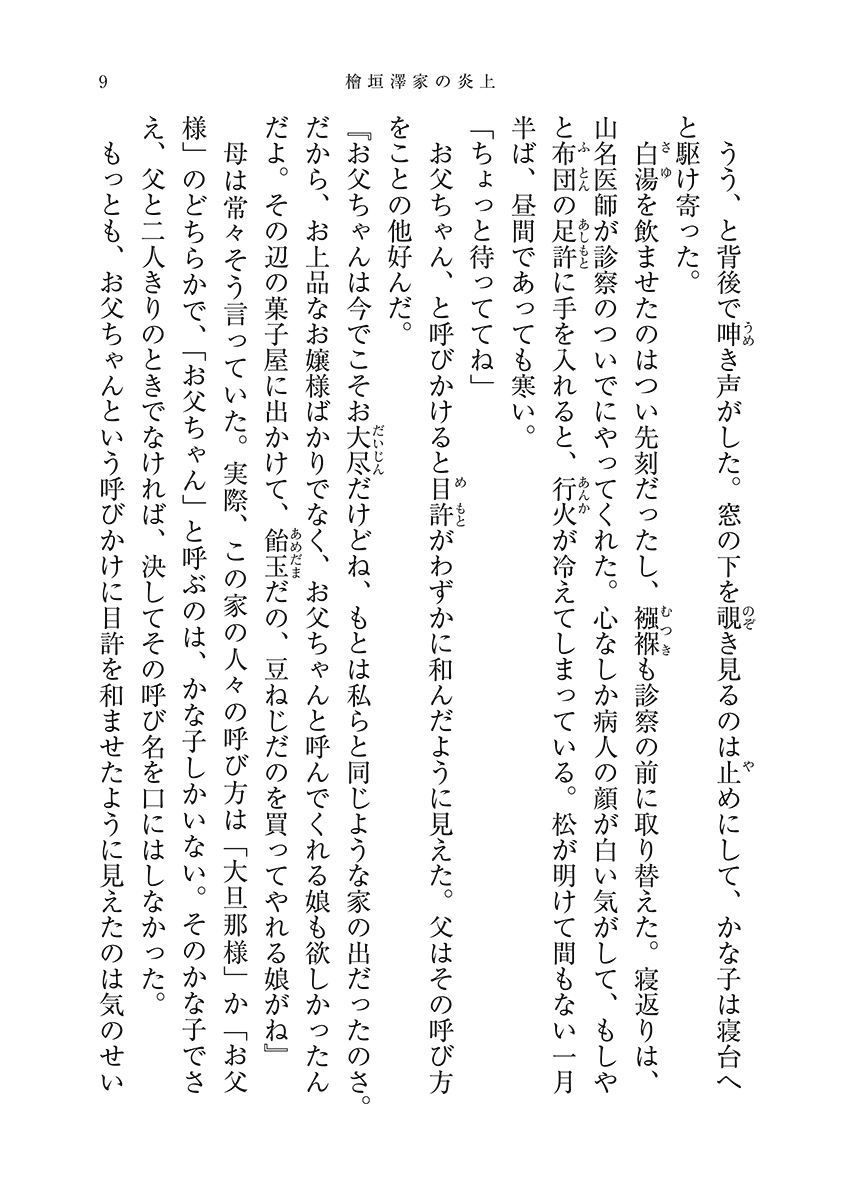 檜垣澤家の炎上
9
うう、と背後で呻き声がした。窓の下を覗き見るのは止めにして、かな子は寝台へ
と駆け寄った。
白湯を飲ませたのはつい先刻だったし、襁褓も診察の前に取り替えた。寝返りは、
山名医師が診察のついでにやってくれた。心なしか病人の顔が白い気がして、もしや
と布団の足許に手を入れると、行火が冷えてしまっている。松が明けて間もない一月
半ば、昼間であっても寒い。
「ちょっと待っててね」
お父ちゃん、と呼びかけると目許がわずかに和んだように見えた。父はその呼び方
をことの他好んだ。
『お父ちゃんは今でこそお大尽だけどね、もとは私らと同じような家の出だったのさ。
だから、お上品なお嬢様ばかりでなく、お父ちゃんと呼んでくれる娘も欲しかったん
だよ。その辺の菓子屋に出かけて、飴玉だの、豆ねじだのを買ってやれる娘がね』
母は常々そう言っていた。実際、この家の人々の呼び方は「大旦那様」か「お父
様」のどちらかで、「お父ちゃん」と呼ぶのは、かな子しかいない。そのかな子でさ
え、父と二人きりのときでなければ、決してその呼び名を口にはしなかった。
もっとも、お父ちゃんという呼びかけに目許を和ませたように見えたのは気のせい